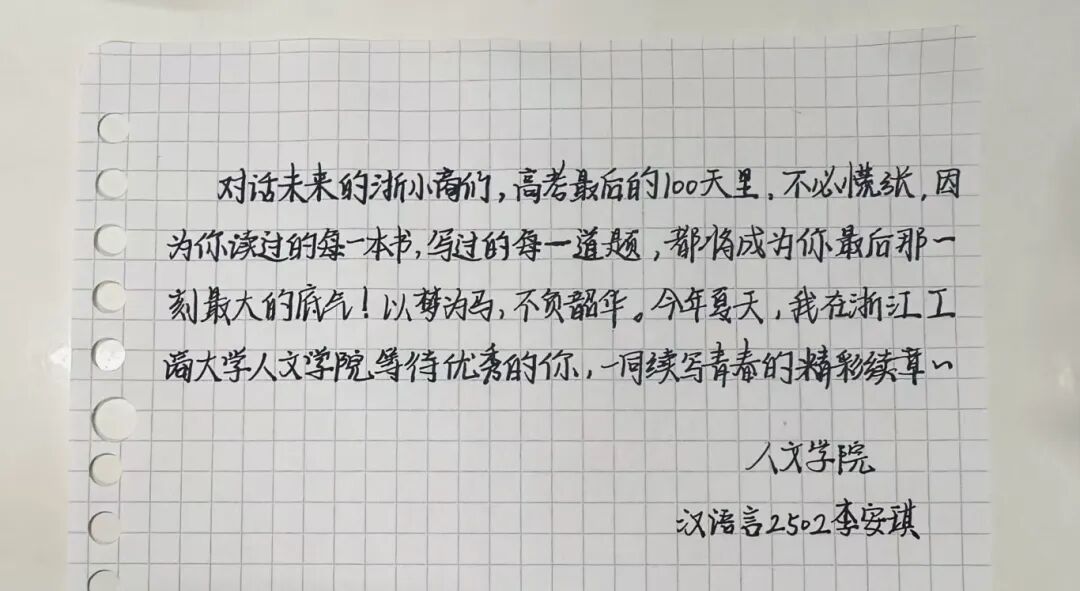 对话未来的浙小商们，高考最后的100天里，不必慌张，因
为你读过的每一本书，写过的每一道题，都将成为你最后那一
刻最大的底气！以梦为马，不负韶华。今年夏天，我在浙江工
商大学人文学院等待优秀的你，一同续写青春的精彩续章~
人文学院
汉语言2502李安琪